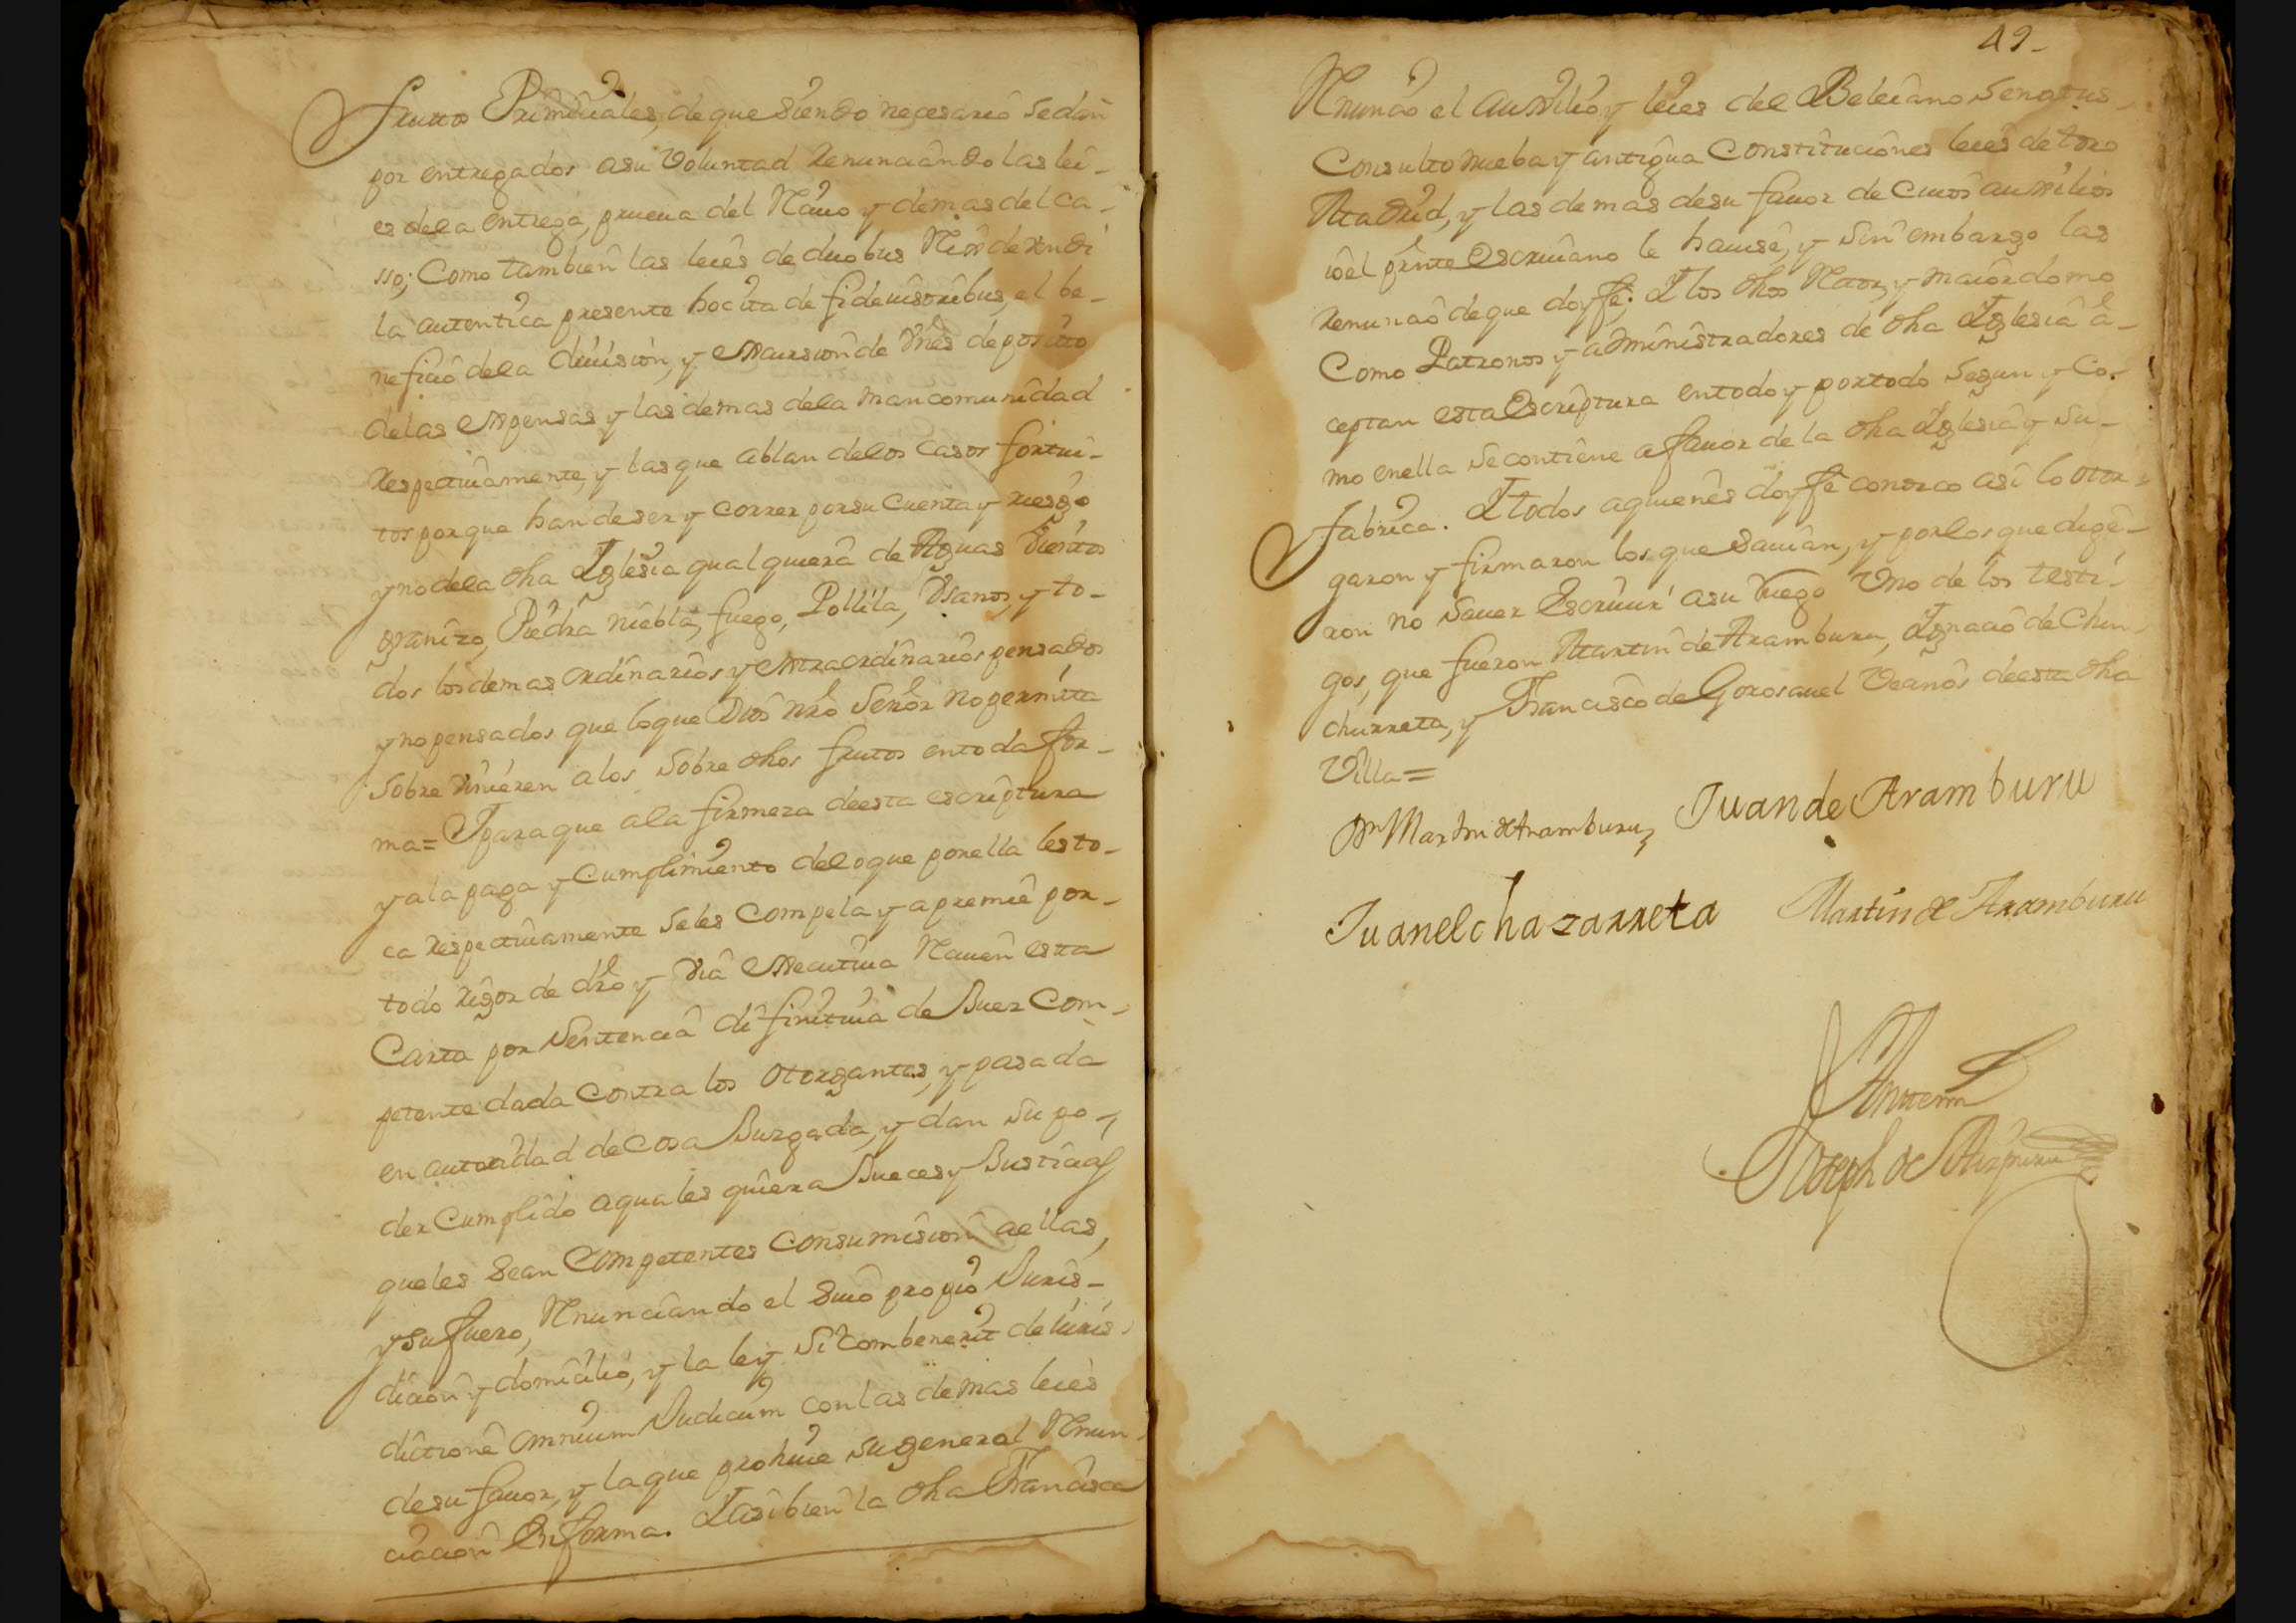 frutos Primiciales, de que siendo necesario se dan
por entregados a su Voluntad Renunciando las lei-
es dela entrega, prueua del Reciuo y demas del ca-
sso; Como tambien las leies de duobus Reix de vendi
la autentica presente hoc ita de fideiusoribus, el be-
neficio dela diuision, y excursion de vnes deposito
delas expensas y las demas dela mancomunidad
Respectiuamente, y las que ablan delos Casos fortui-
tos porque han de ser y correr por su Cuenta y riesgo
y no dela dha Iglesia qualquiera de Aguas Vientos
granizo, Piedra niebla, fuego, Pollila, Vsanos, y to-
dos los demas ordinarios y extraordinarios pensados
y no pensados que loque Dios nro Señor no permita
sobre viniéren a los sobre dhos frutos en toda for-
ma= I para que ala firmeza de esta escriptura
y ala paga y Cumplimiento delo que por ella les to-
ca Respectiuamente se les Compela y apremie por-
todo rigor de dro y via executiua Rauen esta
Carta por Sentencia difinitiua de Juez Com-
petente dada Contra los otorgantes, y pasada
en autoridad de Cosa Juzgada, y dan su po-
der Cumplido a quales quiera Jueces y Justicias
que les sean Competentes con sumision a ellas,
y su fuero, Renunciando el suio propio Juris-
dicion y domicilio, y la ley Si combenerit de iuris
ditione omnium Judicum con las demas leies
de su fauor, y la que prohiue su general Renun-
ciacion En forma. I asi bien la dha Francisca
49-
Renuncio el auxilio y leies del Beleiano Senatus-
Consulto nueba y antigua Constituciones leies de toro
Madrid, y las demas de su fauor de Cuios auxilios
io el prnte Escriuano le hauise, y sin embargo las
Renuncio de que doy fe; I los dhos Rector, y maiordomo
Como Patronos y administradores de dha Iglesia a-
ceptan esta Escriptura en todo y por todo segun y Co-
mo en ella se contiene a fauor de la dha Iglesia y su-
fabrica. I todos a quienes doy fe conozco asi lo otor-
garon y firmaron los que sauian, y por los que dige-
ron no sauer Escriuir a su ruego Vno de los testi-
gos, que fueron Martin de Aramburu, Ignacio de Chin-
churreta, y Francisco de Gorosauel Vecinos de esta dha
Villa=
Dn Martin de Aramburu Juan de Aramburu
Juan elchazarreta Martin de Aramburu
Ante mi
Joseph de Aizpuru